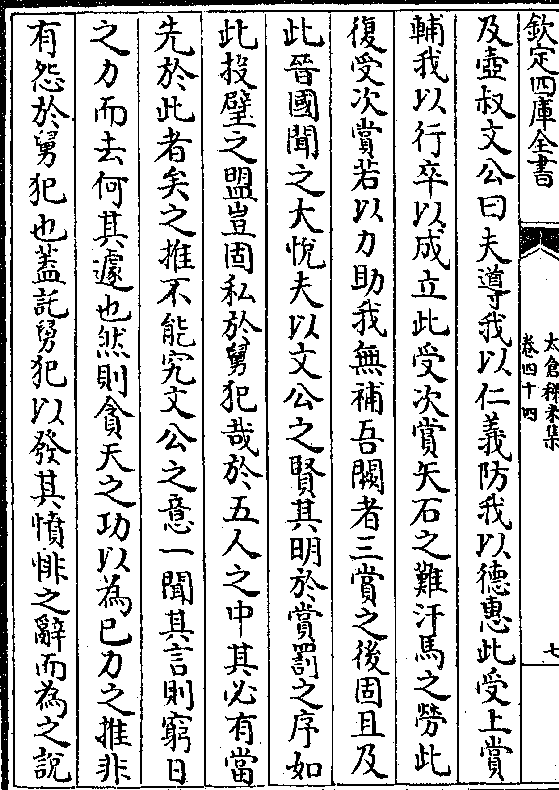 欽定四庫全書
太倉稊米集
卷四十四
七
及壺叔文公曰夫導我以仁義防我以德惠此受上賞
輔我以行卒以成立此受次賞矢石之難汗馬之勞此
復受次賞若以力助我無補吾闕者三賞之後固且及
此晉國聞之大悅夫以文公之賢其明於賞罰之序如
此投璧之盟豈固私於舅犯哉於五人之中其必有當
先於此者矣之推不能究文公之意一聞其言則窮日
之力而去何其遽也然則貪天之功以為己力之推非
有怨於舅犯也蓋託舅犯以發其憤悱之辭而為之說